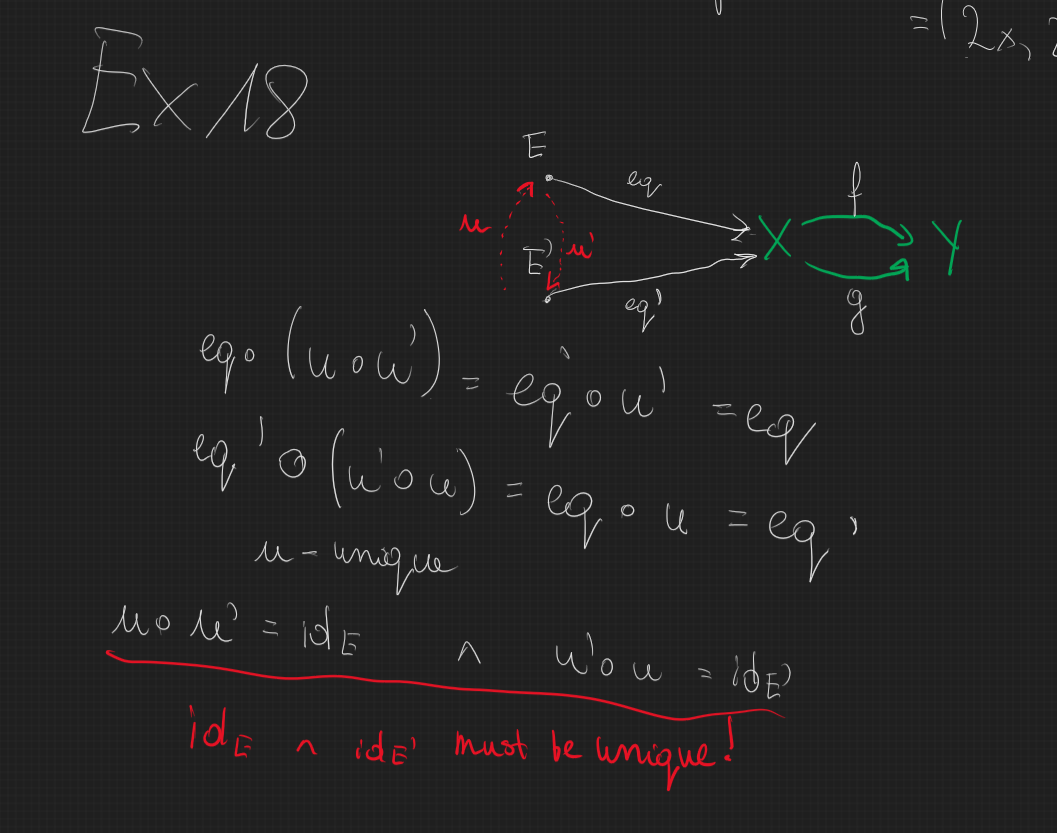 = (2x,
Ex 18
E
eq
f
u
u'
E'
X
Y
eq'
g
eq ∘ (u ∘ u') = eq' ∘ u' = eq
eq' ∘ (u' ∘ u) = eq ∘ u = eq'
u - unique
u ∘ u' = id_E ∧ u' ∘ u = id_E'
id_E ∧ id_E' must be unique!